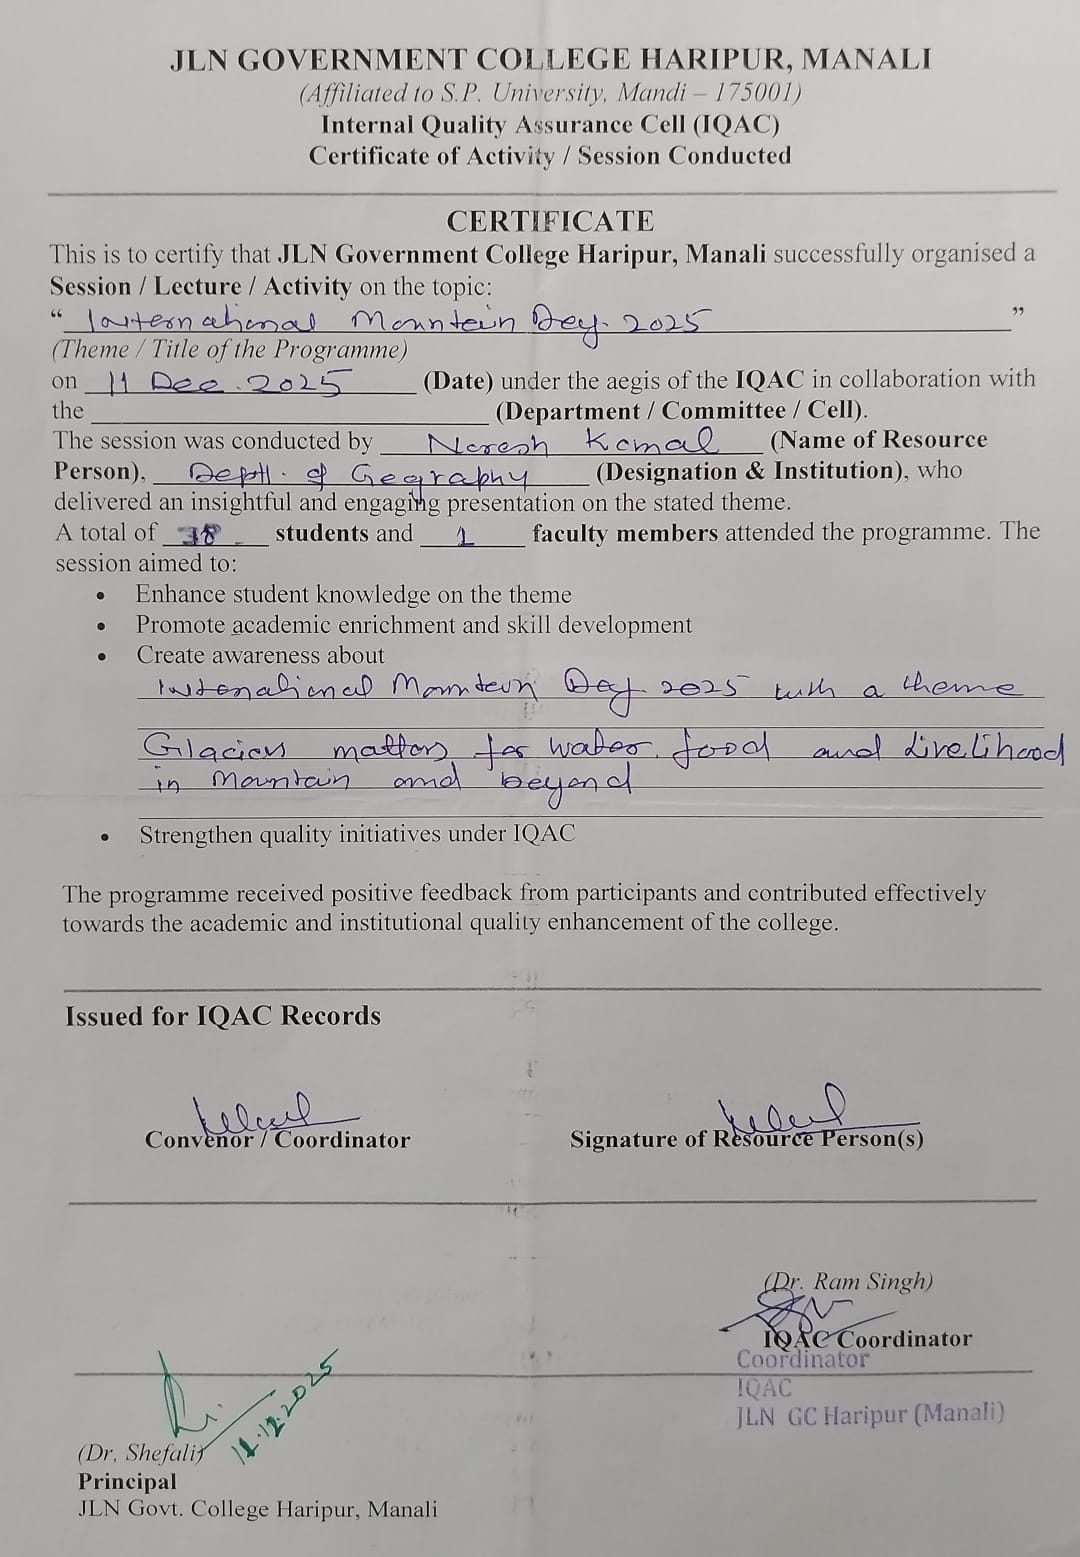 JLN GOVERNMENT COLLEGE HARIPUR, MANALI
(Affiliated to S.P. University, Mandi – 175001)
Internal Quality Assurance Cell (IQAC)
Certificate of Activity / Session Conducted
CERTIFICATE
This is to certify that JLN Government College Haripur, Manali successfully organised a
Session / Lecture / Activity on the topic:
“ International Mountain Day. 2025 ”
(Theme / Title of the Programme)
on 11 Dec. 2025 (Date) under the aegis of the IQAC in collaboration with
the (Department / Committee / Cell).
The session was conducted by Naresh Kamal (Name of Resource
Person), Deptt. of Geography (Designation & Institution), who
delivered an insightful and engaging presentation on the stated theme.
A total of 38 students and 1 faculty members attended the programme. The
session aimed to:
• Enhance student knowledge on the theme
• Promote academic enrichment and skill development
• Create awareness about
Intenational Mountain Day 2025 with a theme
Glaciers matters for water, food and Livelihood
in Mountain and beyond
• Strengthen quality initiatives under IQAC
The programme received positive feedback from participants and contributed effectively
towards the academic and institutional quality enhancement of the college.
Issued for IQAC Records
Convenor / Coordinator Signature of Resource Person(s)
(Dr. Ram Singh)
IQAC Coordinator
Coordinator
IQAC
JLN GC Haripur (Manali)
11.12.2025
(Dr, Shefali)
Principal
JLN Govt. College Haripur, Manali